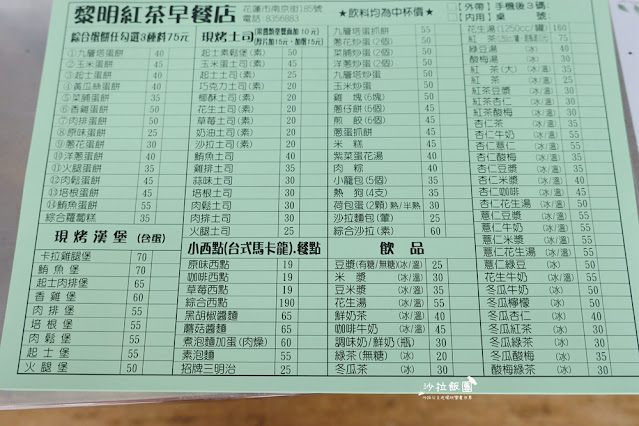 黎明紅茶早餐店
花蓮市南京街185號
電話:8356883
★飲料均為中杯價★
【外帶】手機後3碼:
【內用】桌 號:
綜合蛋餅任勾選3種料75元
①九層塔蛋餅 40
②玉米蛋餅 40
③起士蛋餅 40
④黃瓜絲蛋餅 40
⑤菜脯蛋餅 35
⑥香雞蛋餅 50
⑦肉排蛋餅 50
⑧原味蛋餅 25
⑨蔥花蛋餅 30
⑩洋蔥蛋餅 40
⑪火腿蛋餅 35
⑫肉鬆蛋餅 45
⑬培根蛋餅 45
⑭鮪魚蛋餅 55
綜合蘿蔔糕 35
現烤漢堡 (含蛋)
卡拉雞腿堡 70
鮪魚堡 70
起士肉排堡 65
香雞堡 60
肉排堡 55
培根堡 55
肉鬆堡 55
起士堡 55
火腿堡 50
現烤土司
起士素鬆堡(素)
玉米土司(素)
起士土司(素)
巧克力土司(素) 20
椰酥土司(素) 20
花生土司(素) 20
草莓土司(素) 20
奶油土司(素) 20
沙拉土司(素) 20
鮪魚土司 40
雞排土司 35
蒜味土司 30
培根土司 35
肉鬆土司 30
肉排土司 35
火腿土司 25
小西點(台式馬卡龍).餐點
原味西點 19
咖啡西點 19
草莓西點 19
綜合西點 190
黑胡椒醬麵 65
蘑菇醬麵 65
煮泡麵加蛋(肉燥) 60
素泡麵 55
招牌三明治 25
九層塔抓餅 55
蔥花炒蛋
洋蔥炒蛋
九層塔炒蛋
玉米炒蛋
雞塊(6塊)
蔥仔餅(6個) 45
煎餃(6個) 40
蔥蛋抓餅 45
米糕 45
紫菜蛋花湯 40
肉粽 40
小籠包(5個) 35
熱狗(4支) 35
荷包蛋(2顆)熟/半熟 30
沙拉麵包(葷) 25
綜合沙拉(素) 60
飲品
豆漿(有糖/無糖)(冰/溫) 25
米漿 (冰/溫) 30
豆米漿 (冰/溫) 35
花生湯 (冰/溫) 55
鮮奶茶 (冰/溫) 40
咖啡牛奶 (冰/溫) 45
調味奶/鮮奶(瓶) 30
綠茶(無糖) (冰) 20
冬瓜茶 (冰) 30
花生湯(1250cc/罐) 160
綠豆湯 (冰)
酸梅湯 (冰)
紅茶(大) (冰/溫)
紅茶 (冰/溫)
紅茶豆漿 (冰/溫)
紅茶杏仁 (冰/溫)
紅茶酸梅 (冰)
杏仁茶 (冰/溫)
杏仁牛奶 (冰/溫) 55
杏仁薏仁 (冰/溫) 55
杏仁酸梅 (冰) 35
杏仁豆漿 (冰/溫) 35
杏仁米漿 (冰/溫) 35
杏仁咖啡 (冰/溫) 45
杏仁花生湯 (冰/溫) 55
薏仁豆漿 (冰/溫) 55
薏仁牛奶 (冰/溫) 55
薏仁花生湯 (冰/溫) 55
薏仁綠豆 (冰) 55
花生牛奶 (冰/溫) 55
冬瓜牛奶 (冰) 45
冬瓜檸檬 (冰) 50
冬瓜杏仁 (冰) 40
冬瓜紅茶 (冰) 30
冬瓜綠茶 (冰) 30
冬瓜酸梅 (冰) 35
酸梅綠茶 (冰) 30
沙拉飯團